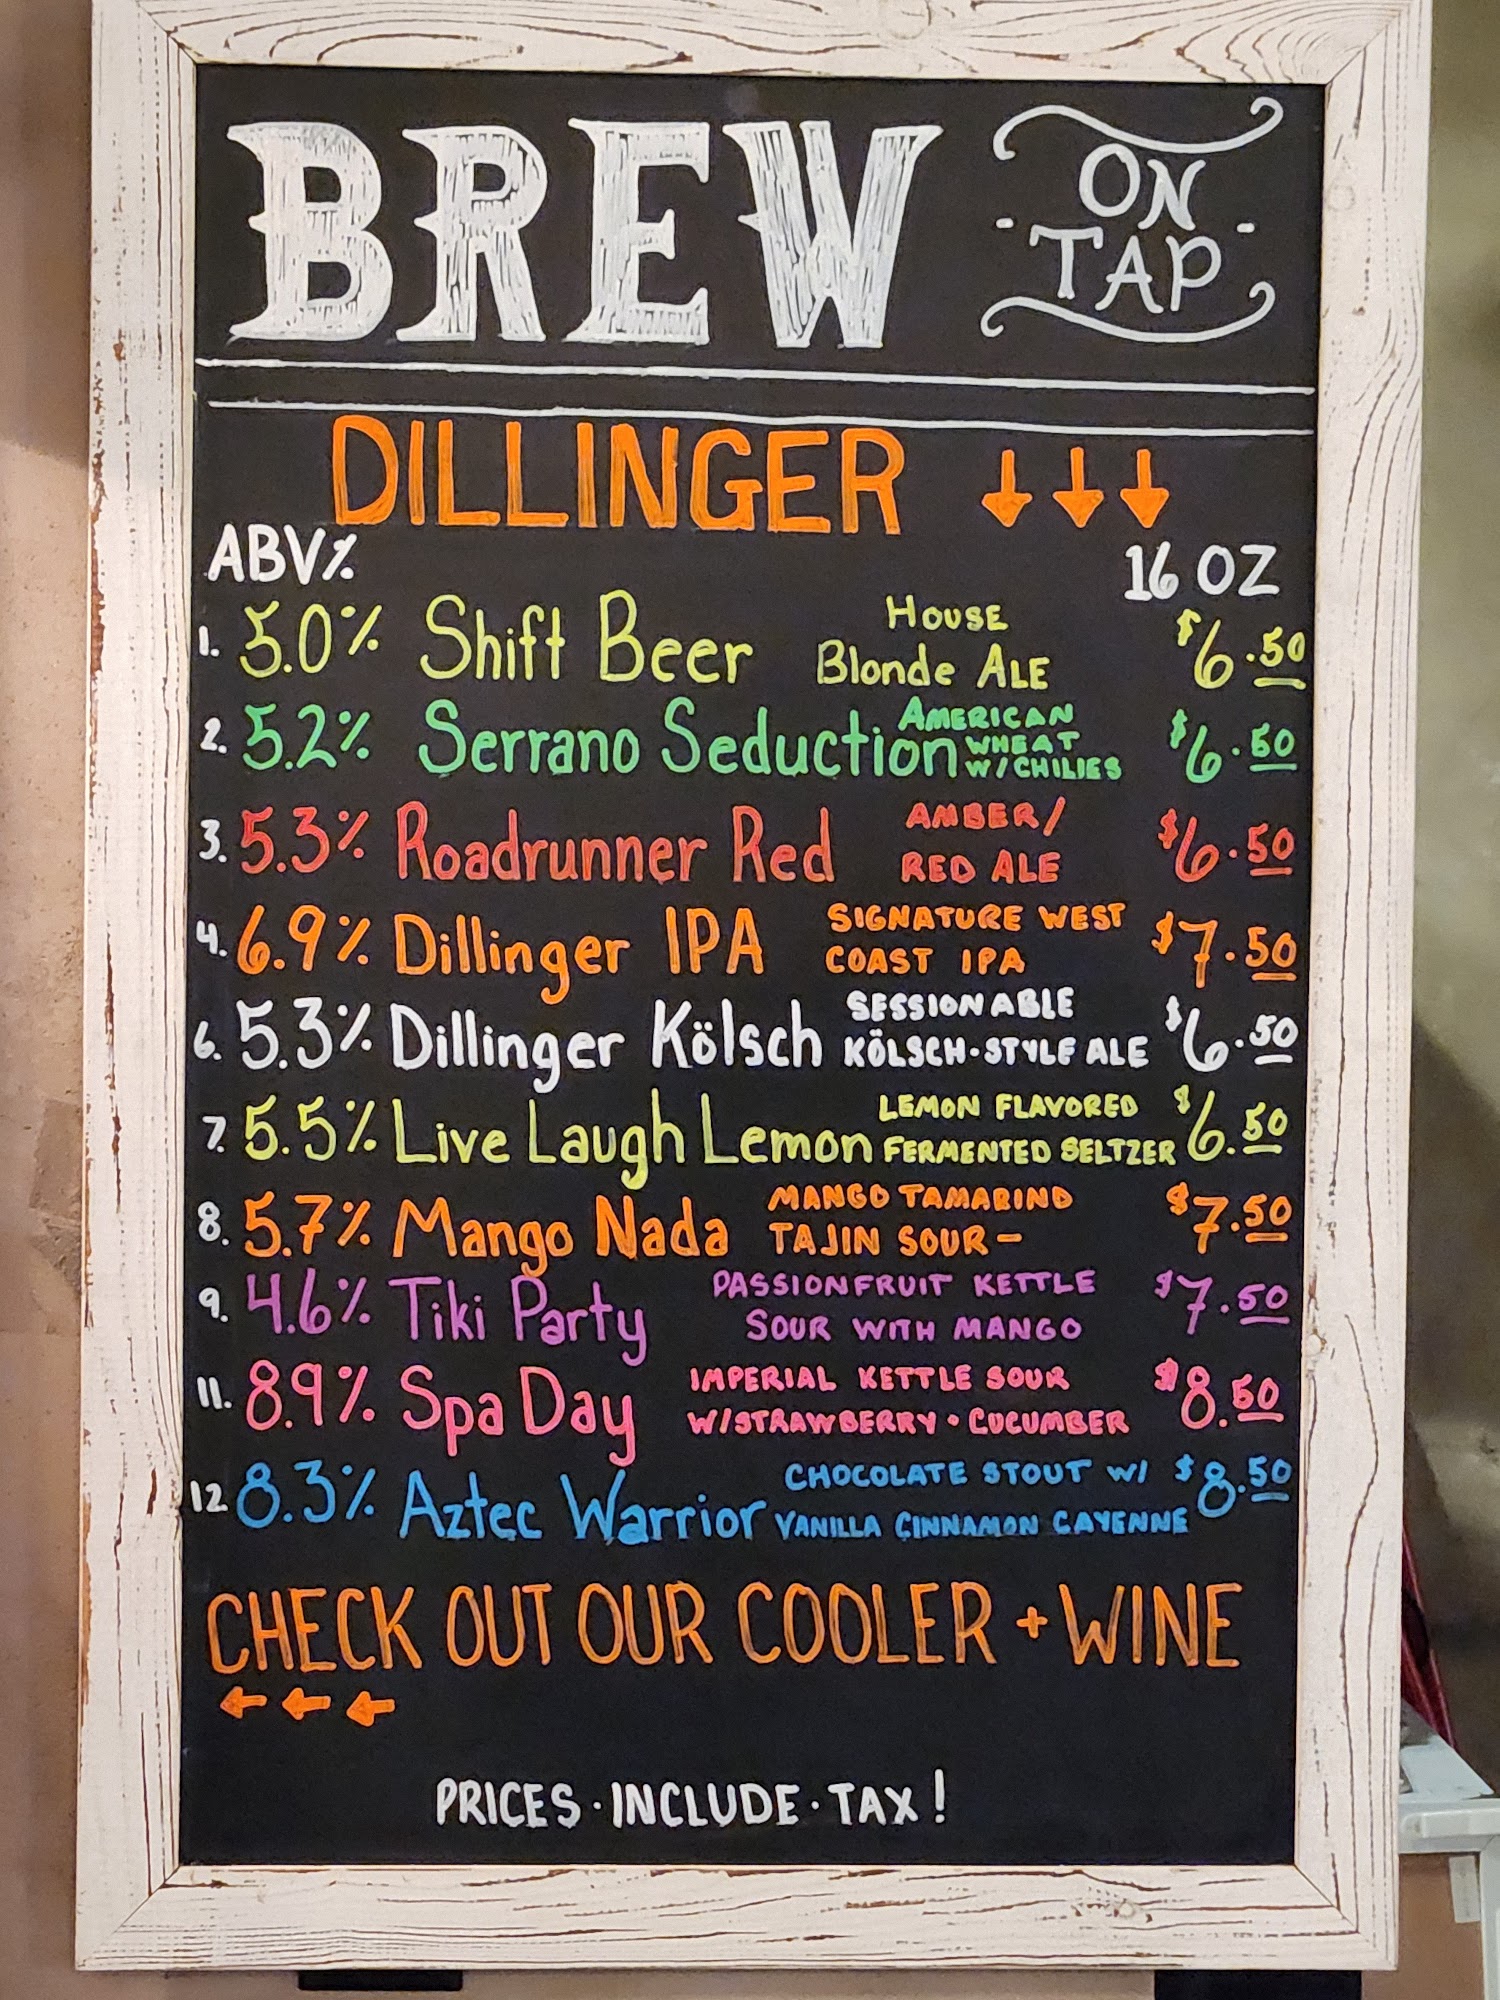 BREW
- ON -
TAP
DILLINGER ↓↓↓
ABV% 16 OZ
1. 5.0% Shift Beer House Blonde ALE $6.50
2. 5.2% Serrano Seduction AMERICAN WHEAT W/CHILIES $6.50
3. 5.3% Roadrunner Red AMBER/ RED ALE $6.50
4. 6.9% Dillinger IPA SIGNATURE WEST COAST IPA $7.50
6. 5.3% Dillinger Kölsch SESSIONABLE KÖLSCH-STYLE ALE $6.50
7. 5.5% Live Laugh Lemon LEMON FLAVORED FERMENTED SELTZER $6.50
8. 5.7% Mango Nada MANGO TAMARIND TAJIN SOUR- $7.50
9. 4.6% Tiki Party PASSIONFRUIT KETTLE SOUR WITH MANGO $7.50
11. 8.9% Spa Day IMPERIAL KETTLE SOUR W/STRAWBERRY • CUCUMBER $8.50
12 8.3% Aztec Warrior CHOCOLATE STOUT W/ VANILLA CINNAMON CAYENNE $8.50
CHECK OUT OUR COOLER + WINE
←←←
PRICES · INCLUDE · TAX!